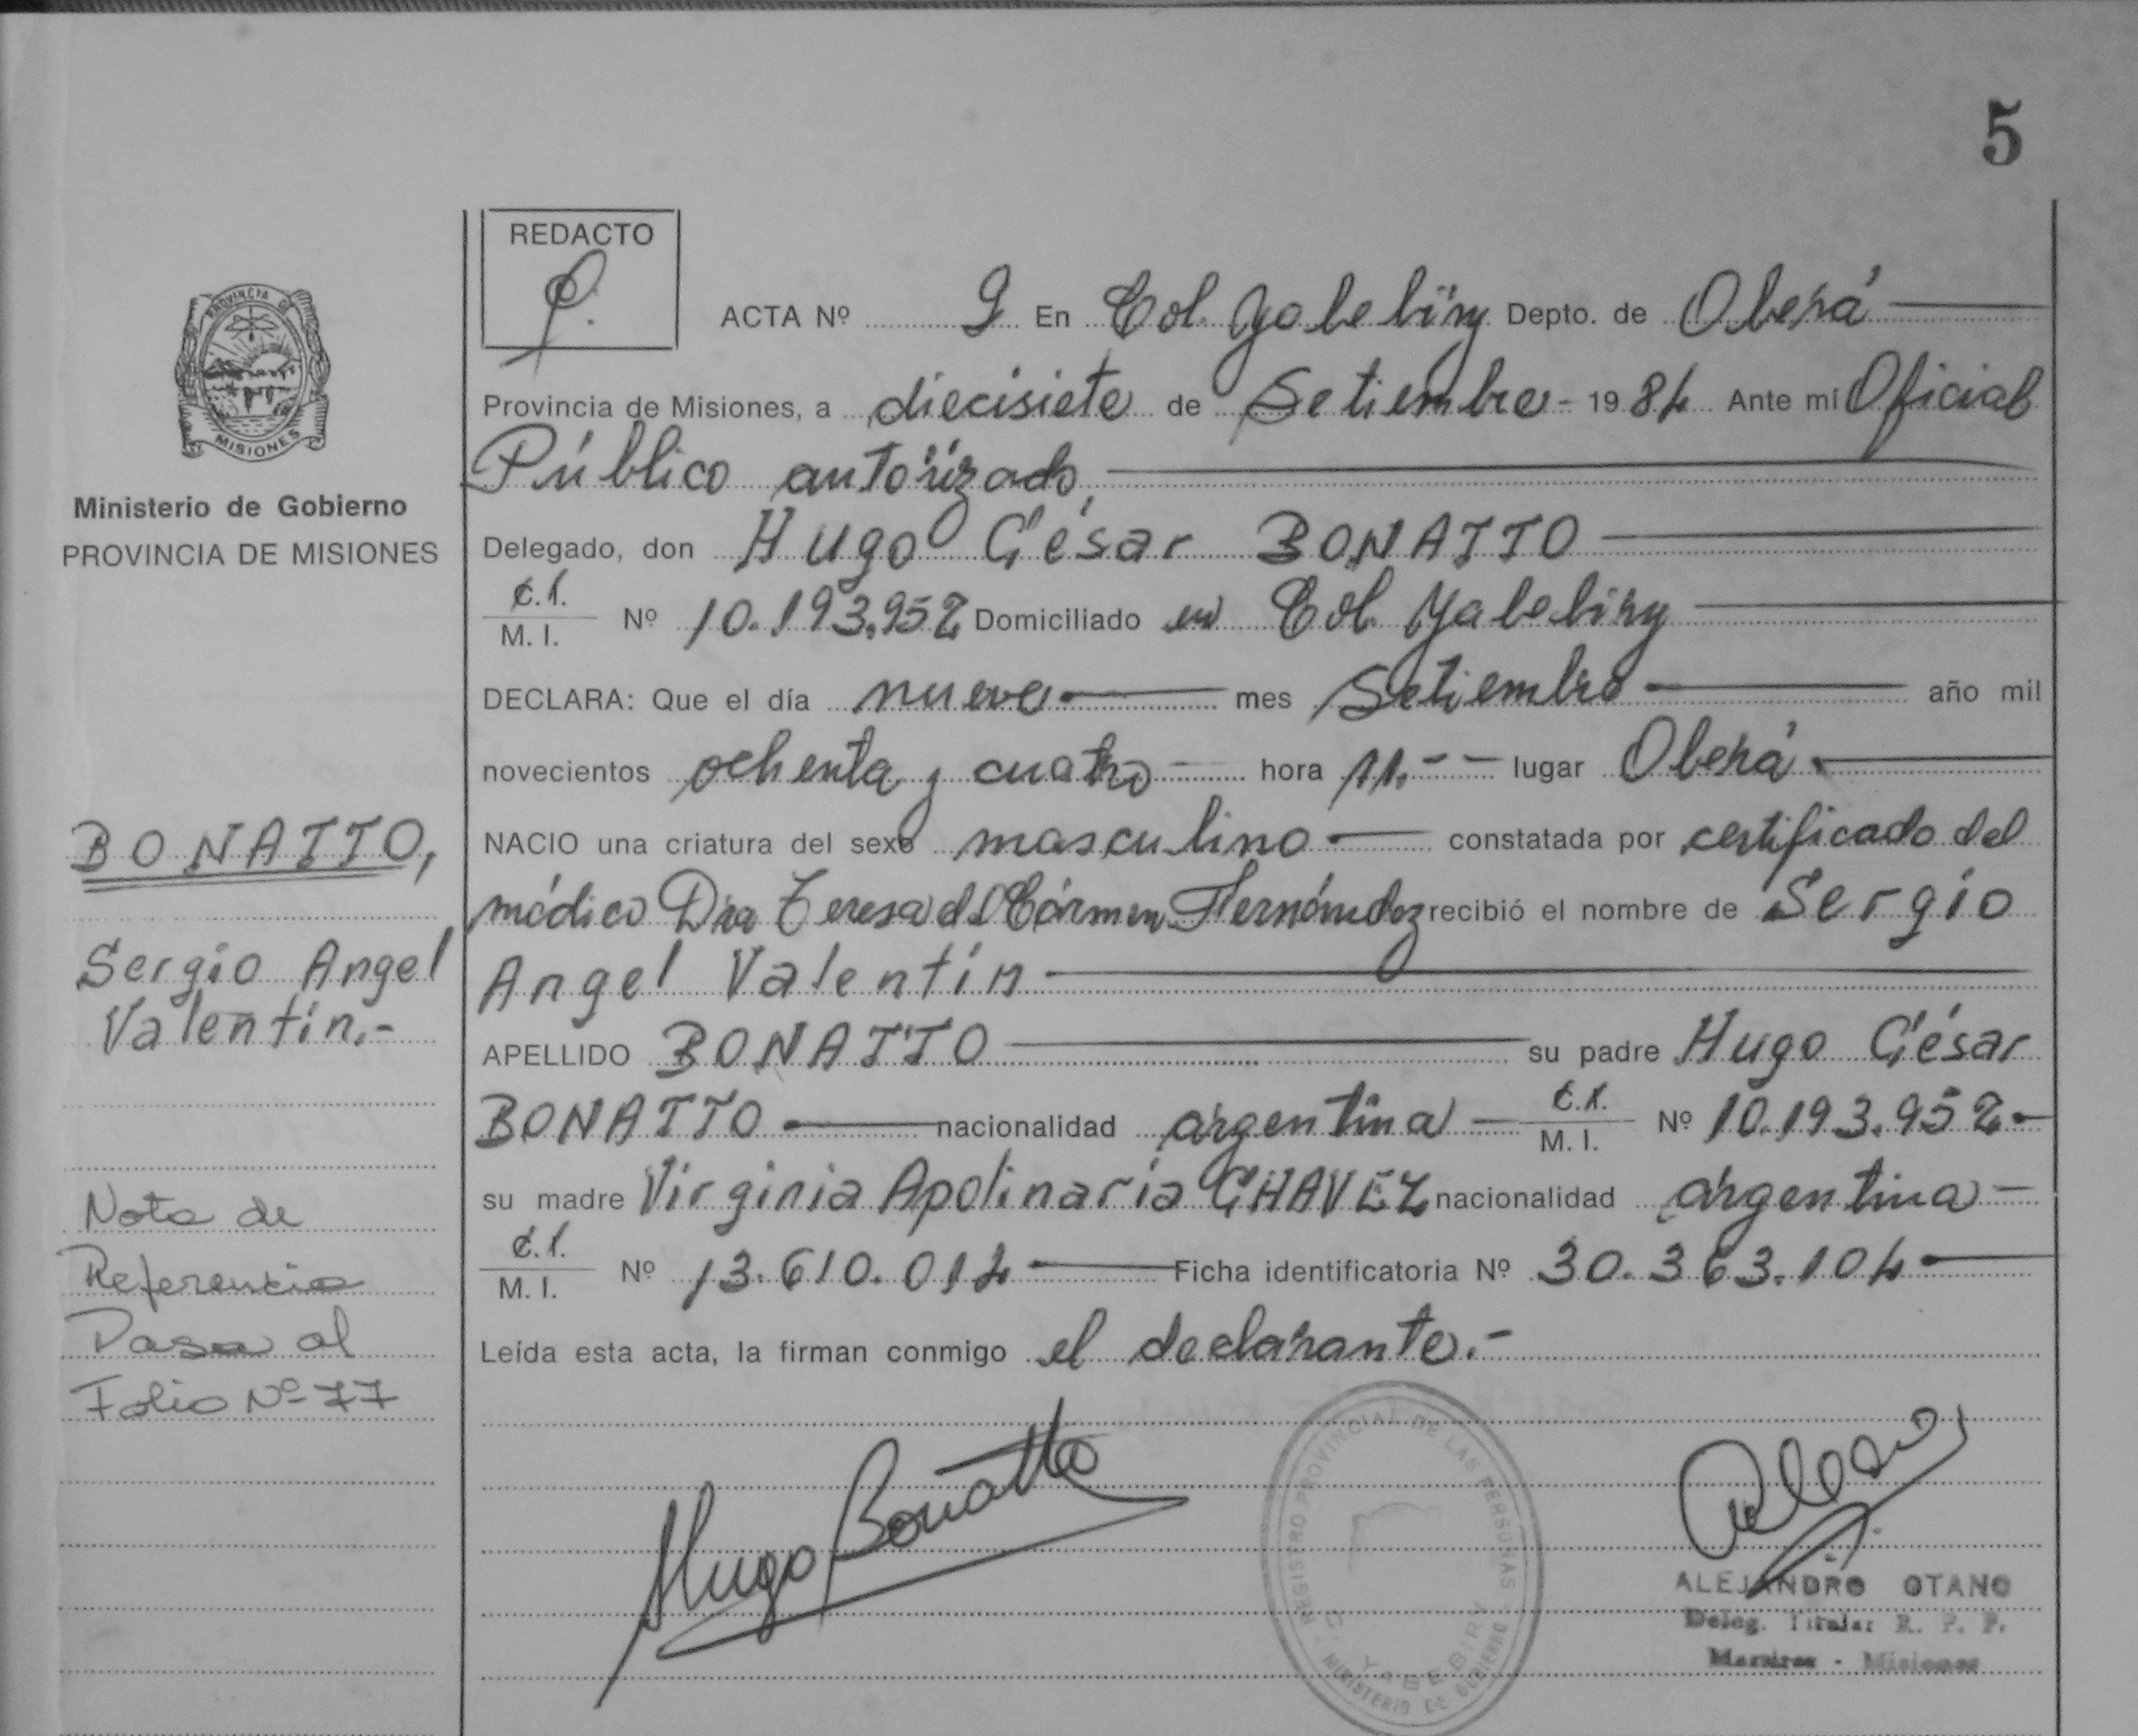 5
REDACTO
PROVINCIA DE
MISIONES
Ministerio de Gobierno
PROVINCIA DE MISIONES
BONATTO,
Sergio Angel
Valentín.-
Nota de
Referencia
Pasa al
Folio Nº 77
ACTA Nº 9 En Col. Yabebiry Depto. de Oberá
Provincia de Misiones, a diecisiete de Setiembre - 1984 Ante mí Oficial
Público autorizado,
Delegado, don Hugo César BONATTO
C.I.
M. I. Nº 10.193.952 Domiciliado en Col. Yabebiry
DECLARA: Que el día nueve mes Setiembre año mil
novecientos ochenta y cuatro hora 11.-- lugar Oberá
NACIO una criatura del sexo masculino constatada por certificado del
médico Dra Teresa del Cármen Hernández recibió el nombre de Sergio
Angel Valentín
APELLIDO BONATTO su padre Hugo César
BONATTO nacionalidad argentina C.I. M. I. Nº 10.193.952-
su madre Virginia Apolinaria CHAVEZ nacionalidad argentina -
C.I.
M. I. Nº 13.610.014 Ficha identificatoria Nº 30.363.104
Leída esta acta, la firman conmigo el declarante.-
Hugo Bonatto
REGISTRO PROVINCIAL DE LAS PERSONAS
MINISTERIO DE GOBIERNO
YABEBIRY
ALEJANDRO OTANO
Deleg. Titular R. P. P.
Misiones